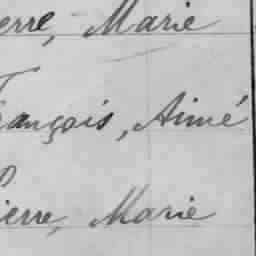 erre, Marie
rançois, Aimé
ierre, Marie